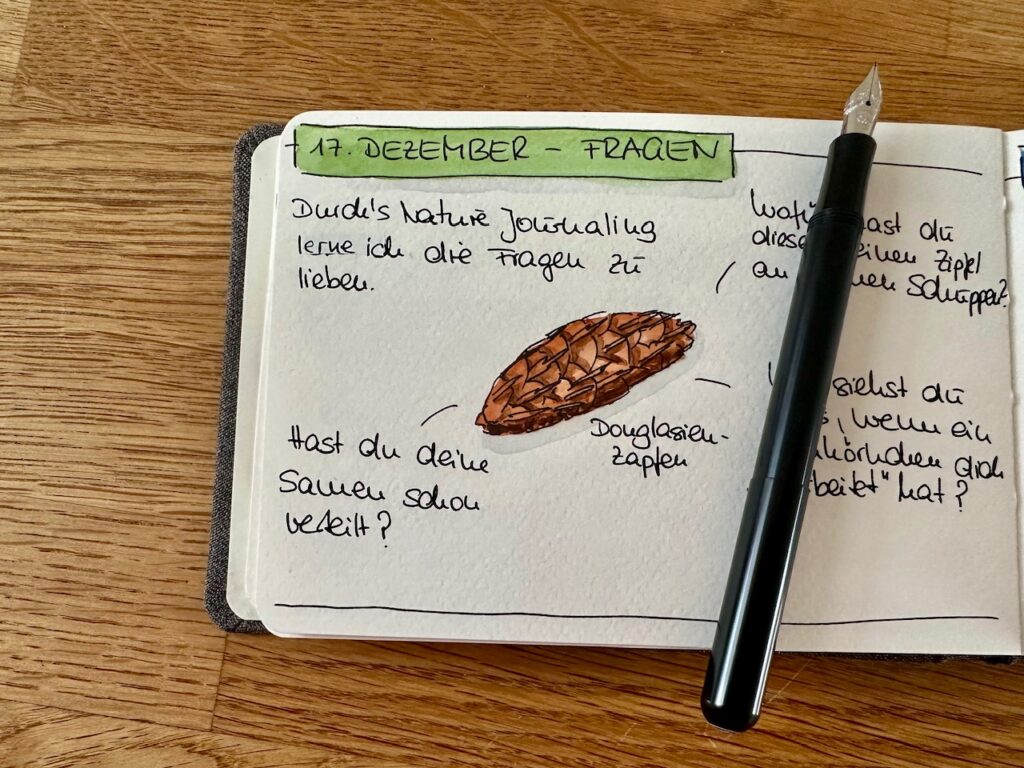 17. DEZEMBER - FRAGEN
Durch's Nature Journaling
lerne ich die Fragen zu
lieben.
hast du
diese einen Zipfel
an Schuppen?
Douglasien-
zapfen
Hast du deine
Samen schon
verteilt?
siehst du
, wenn ein
dich
hat?